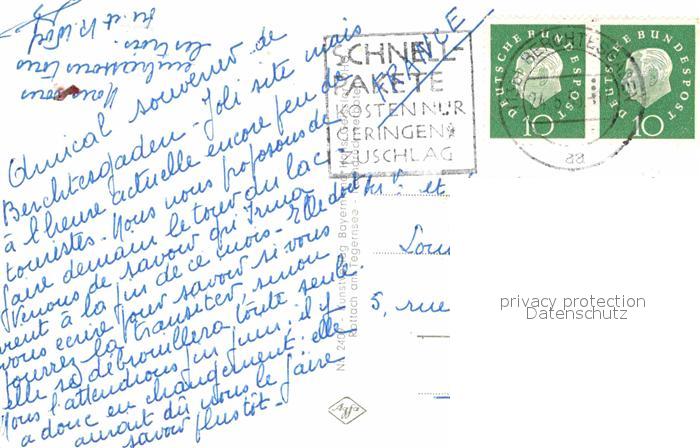 Amical souvenir de
Berchtesgaden - Joli site mais
à l'heure actuelle encore peu de
touristes. Nous nous proposons de
faire demain le tour du lac.
Venons de savoir qu'Irma
vient à la fin de ce mois - Elle doit
vous écrire pour savoir si vous
pourrez la transiter, sinon
elle se débrouillera toute seule.
Nous l'attendions en juin, il y
a donc eu changement : elle
aurait dû nous le faire
savoir plus tôt -
Nous vous
embrassons tous
les trois.
SCHNELL-
PAKETE
KOSTEN NUR
GERINGEN
ZUSCHLAG
FRANCE
DEUTSCHE BUNDESPOST
10
DEUTSCHE BUNDESPOST
10
BERCHTESGADEN
aa
et
5, rue
privacy protection
Datenschutz
Agfa